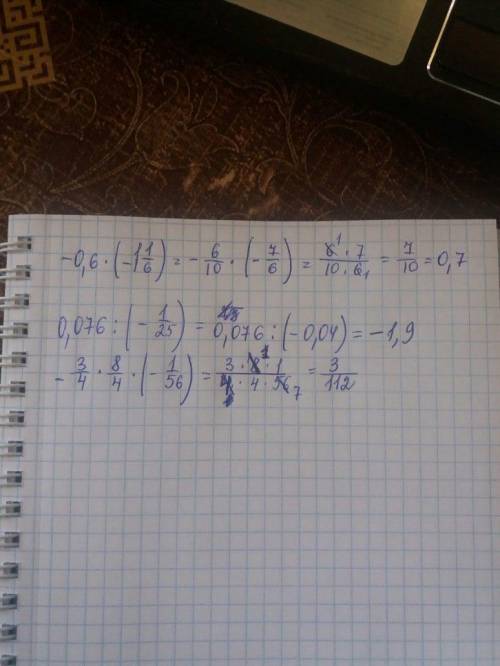 -0,6 · (-1 1/6) = - 6/10 · (- 7/6) = 6¹ · 7 / 10 · 6₁ = 7/10 = 0,7
0,076 : (- 1/25) = 0,076 : (-0,04) = -1,9
- 3/4 · 8/4 · (- 1/56) = 3 · 8¹ · 1 / 4 · 4 · 56₇ = 3/112